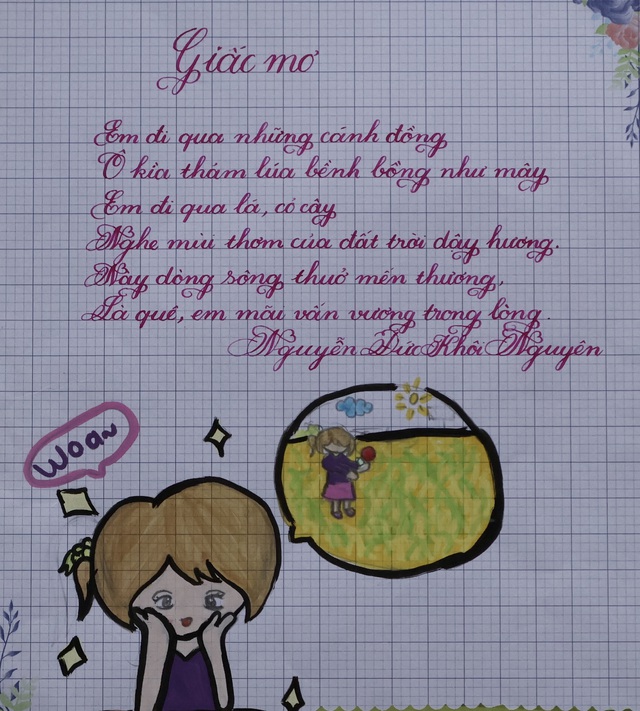 Giấc mơ
Em đi qua những cánh đồng
Ô kìa thảm lúa bềnh bồng như mây
Em đi qua lá, cỏ cây
Nghe mùi thơm của đất trời dậy hương.
Này dòng sông thuở mến thương,
Là quê, em mãi vấn vương trong lòng.
Nguyễn Đức Khôi Nguyên
Woa~